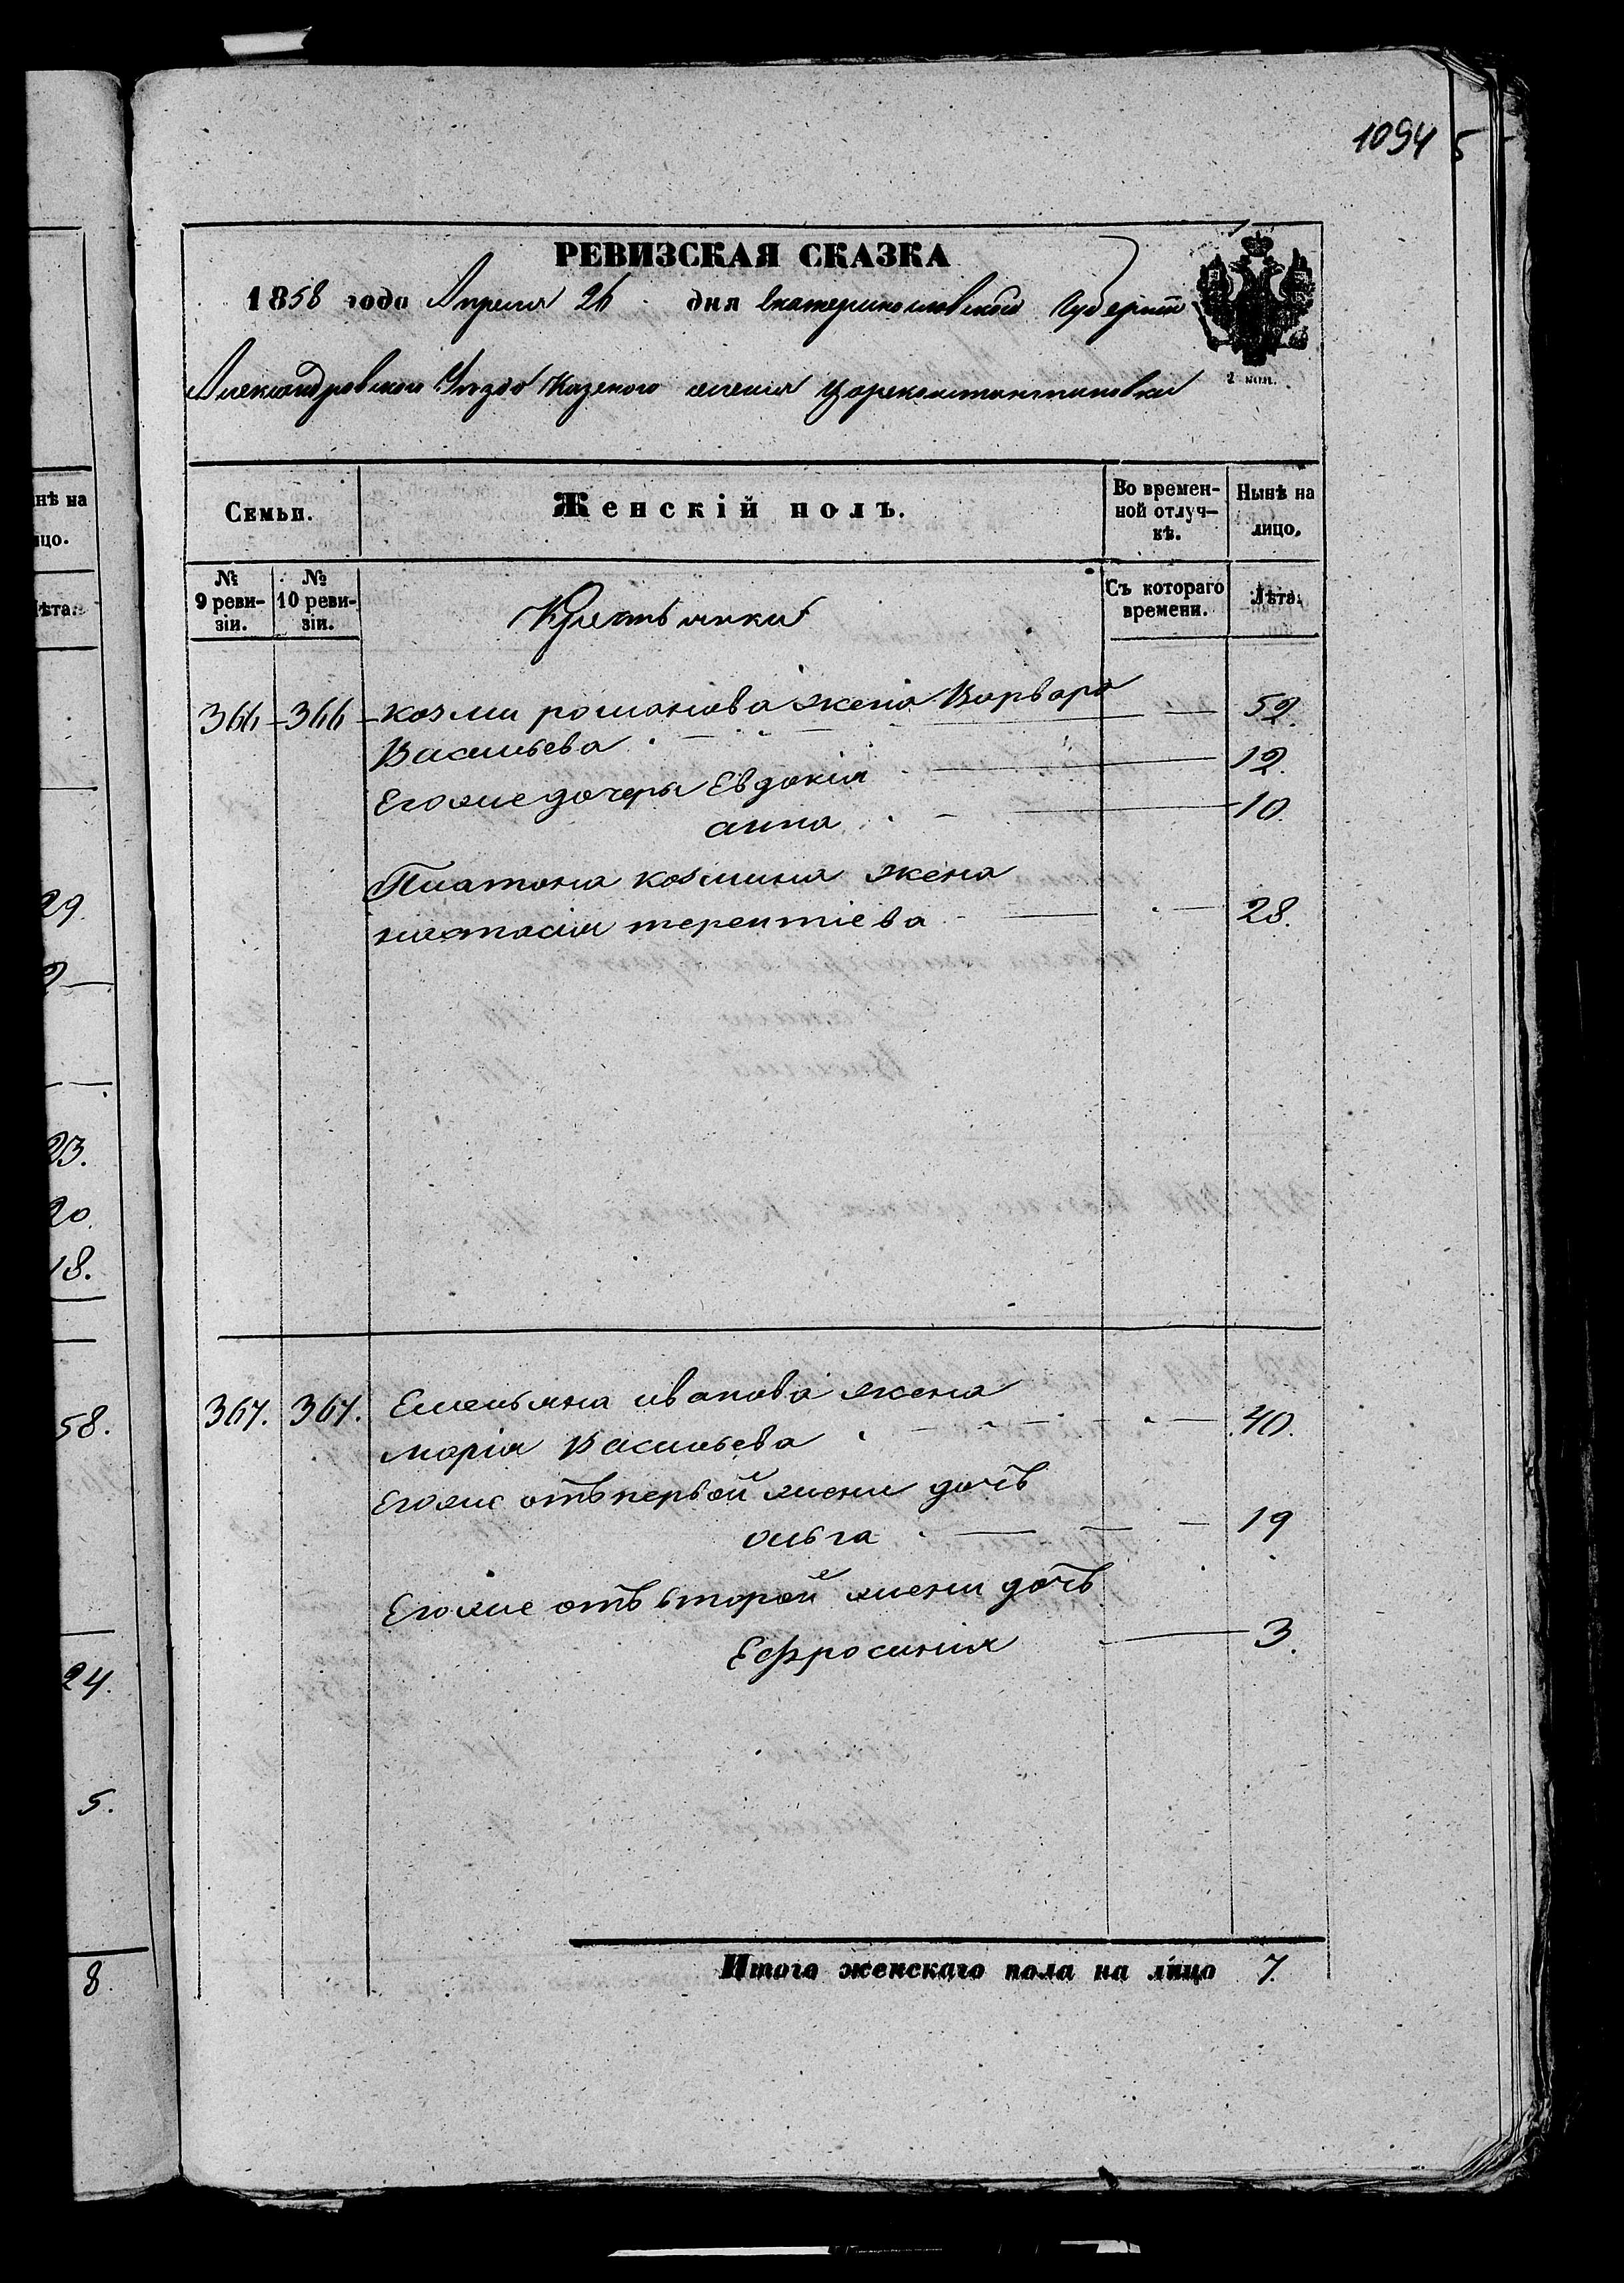 1094
5
РЕВИЗСКАЯ СКАЗКА
1858 года Апреля 26 дня Екатеринославской Губерніи
Александровского Уезда Казеного селенія Цареконстантиновки
2 коп.
Семьи.
Женскій полъ.
Во времен-
ной отлуч-
кѣ.
Нынѣ на
лицо.
№
9 реви-
зіи.
№
10 реви-
зіи.
Крестьянки
Съ котораго
времени.
Лѣта.
366 366 козми романова жена Варвара
Васильева 52.
Егоже дочеры Евдокія 12.
анна 10.
Платона козмина жена
настасія терентіева 28.
367. 367. Емельяна иванова жена
марія Васильева 40.
Егоже отъ первой жени дочь
ольга 19
Егоже отъ второй жени дочь
Ефросинія 3.
Итого женскаго пола на лицо 7.
нѣ на
ицо.
ѣта.
29.
2
23.
20.
18.
58.
24.
5.
8.